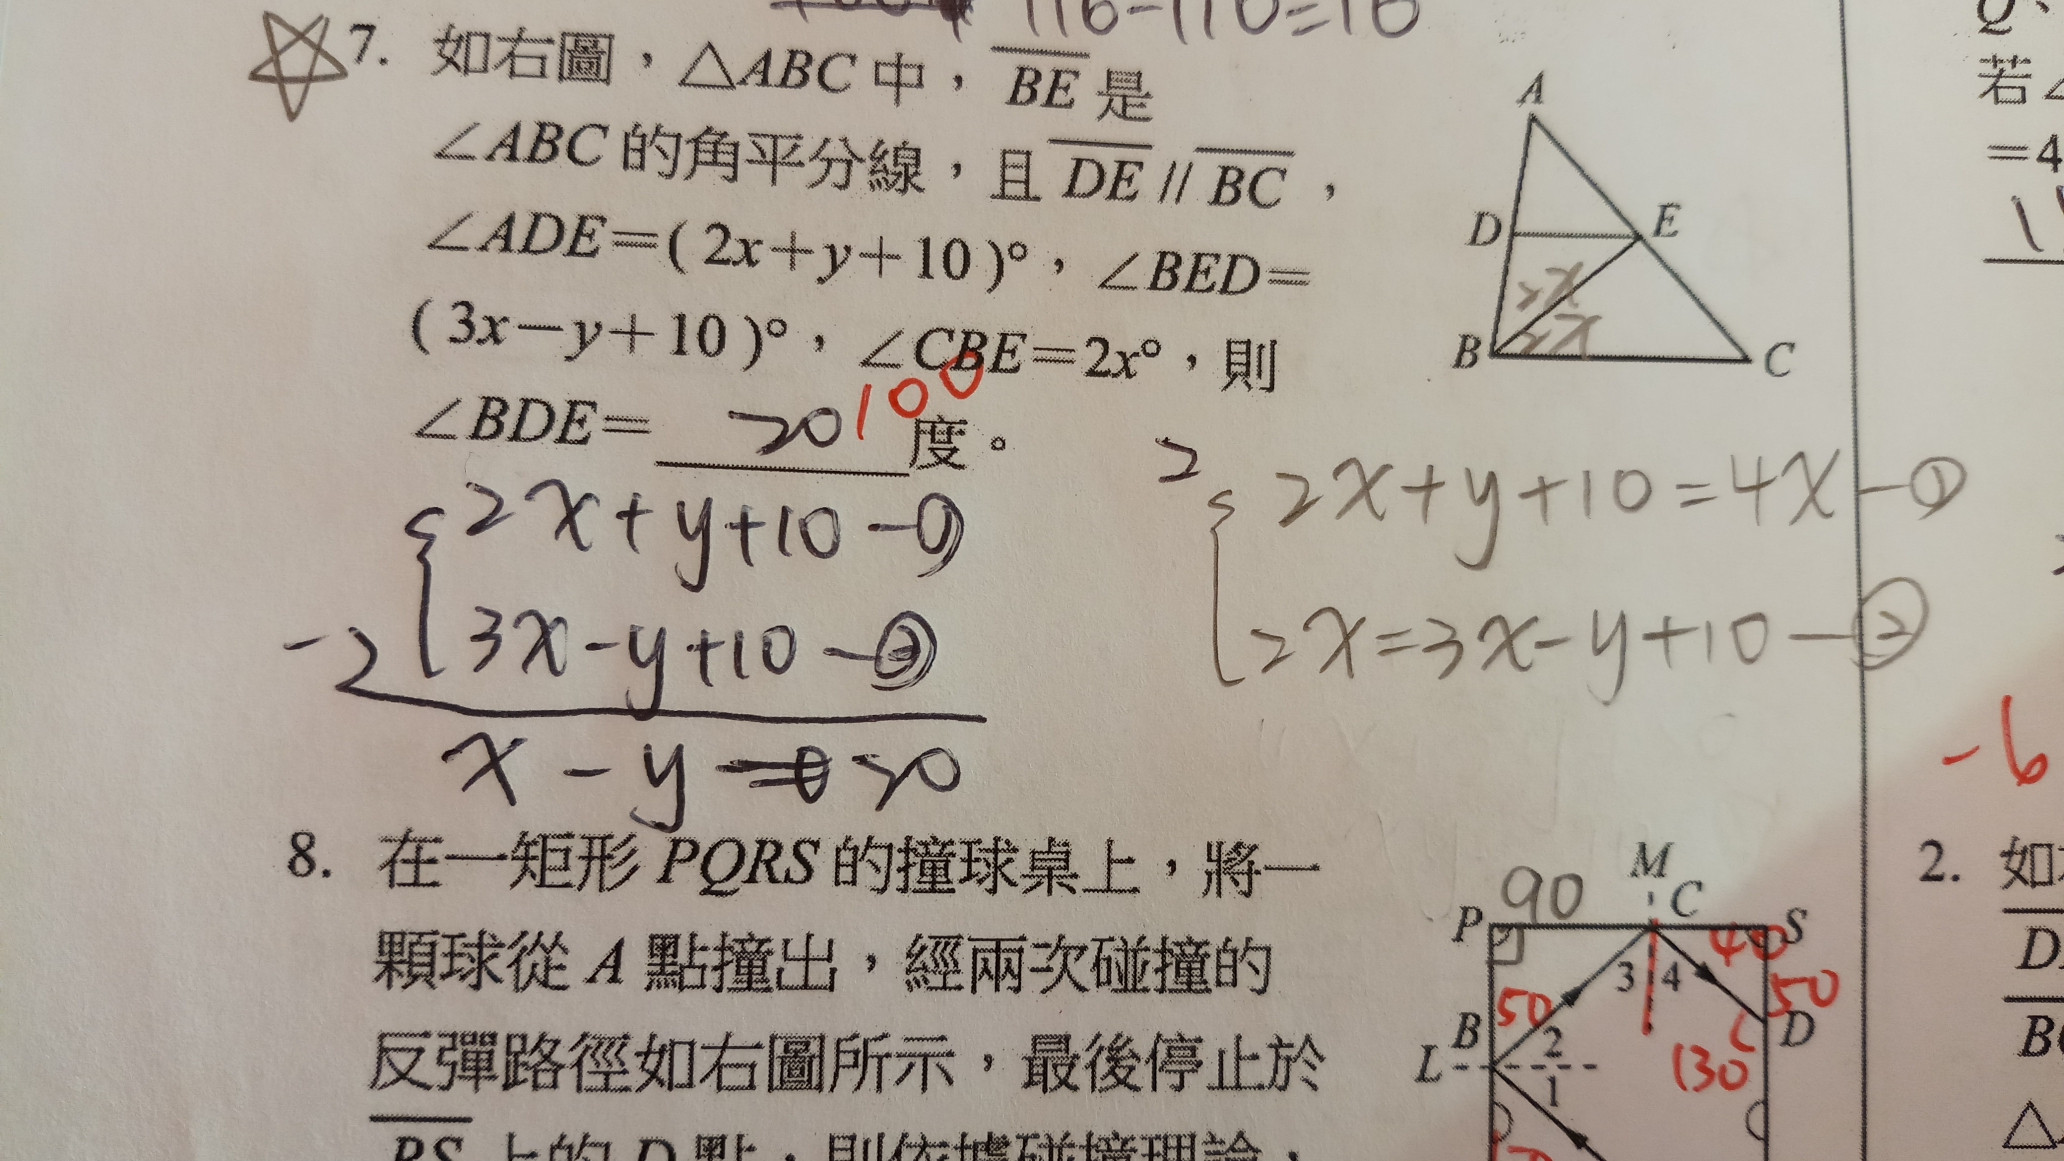 116-110=10
7. 如右圖，△ABC中，BE是
∠ABC的角平分線，且DE // BC，
∠ADE=(2x+y+10)°，∠BED=
(3x-y+10)°，∠CBE=2x°，則
∠BDE= 20 度。
100
A
D
E
2x
2x
B
C
2x+y+10 -①
3x-y+10 -②
-2
x - y = 0 20
2
2x+y+10=4x -①
2x=3x-y+10 -②
8. 在一矩形PQRS的撞球桌上，將一
顆球從A點撞出，經兩次碰撞的
反彈路徑如右圖所示，最後停止於
RS上的D點，則依據碰撞理論，
90
M
C
P
S
40
3
4
50
50
B
2
D
L
1
130
若∠
=4
-6
2. 如
D
B
△